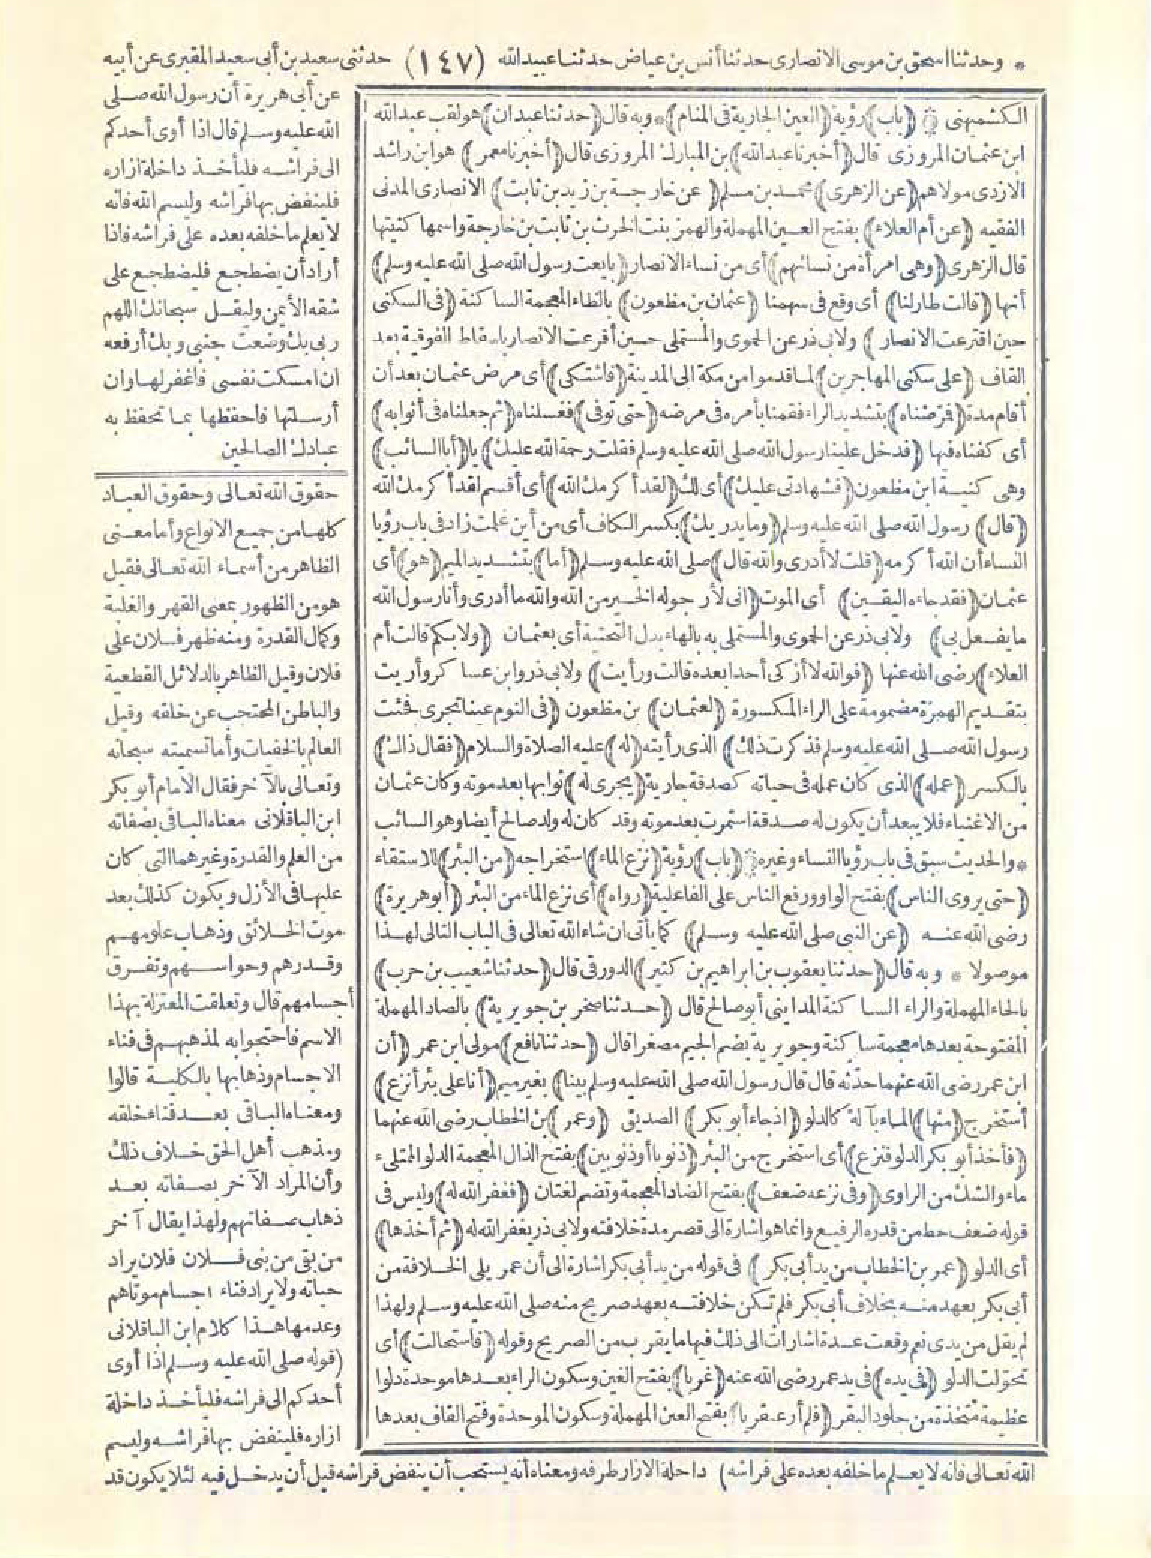 * وحدثنا اسحق بن موسى الانصارى حدثنا أنس بن عياض حدثنا عبيد الله (١٤٧) حدثنى سعيد بن أبى سعيد المقبرى عن أبيه
عن أبى هريرة أن رسول الله صلى
الله عليه وسلم قال اذا أوى أحدكم
الى فراشه فليأخذ داخلة ازاره
فلينفض بها فراشه وليسم الله فانه
لا يعلم ما خلفه بعده على فراشه فاذا
أراد أن يضطجع فليضطجع على
شقه الأيمن وليقل سبحانك اللهم
ربى بك وضعت جنبى وبك أرفعه
ان امسكت نفسى فاغفر لها وان
أرسلتها فاحفظها بما تحفظ به
عبادك الصالحين
حقوق الله تعالى وحقوق العباد
كلها من جميع الانواع وأما معنى
الظاهر من أسماء الله تعالى فقيل
هو من الظهور بمعنى القهر والغلبة
وكمال القدرة ومنه ظهر فلان على
فلان وقيل الظاهر بالدلائل القطعية
والباطن المحتجب عن خلقه وقيل
العالم بالخفيات وأما تسميته سبحانه
وتعالى بالآخر فقال الامام أبو بكر
ابن الباقلانى معناه الباقى بصفاته
من العلم والقدرة وغيرهما التى كان
عليها فى الأزل ويكون كذلك بعد
موت الخلائق وذهاب علومهم
وقدرهم وحواسهم وتفرق
أجسامهم قال وتعلقت المعتزلة بهذا
الاسم فاحتجوا به لمذهبهم فى فناء
الاجسام وذهابها بالكلية قالوا
ومعناه الباقى بعد فناء خلقه
ومذهب أهل الحق خلاف ذلك
وأن المراد الآخر بصفاته بعد
ذهاب صفاتهم ولهذا يقال آخر
من بقى من بنى فلان فلان يراد
حياته ولا يراد فناء اجسام موتاهم
وعدمها هذا كلام ابن الباقلانى
(قوله صلى الله عليه وسلم اذا أوى
أحدكم الى فراشه فليأخذ داخلة
ازاره فلينفض بها فراشه وليسم
الكشميهنى (باب) رؤية (العين الجارية فى المنام) * وبه قال (حدثنا عبدان) هو لقب عبد الله
ابن عثمان المروزى قال (أخبرنا عبد الله) بن المبارك المروزى قال (أخبرنا معمر) هو ابن راشد
الازدى مولاهم (عن الزهرى) محمد بن مسلم (عن خارجة بن زيد بن ثابت) الانصارى المدنى
الفقيه (عن أم العلاء) بفتح العين المهملة والهمز بنت الحرث بن ثابت بن خارجة واسمها كنيتها
قال الزهرى (وهى امرأة من نسائهم) أى من نساء الانصار (بايعت رسول الله صلى الله عليه وسلم)
أنها (قالت طار لنا) أى وقع فى سهمنا (عثمان بن مظعون) بالظاء المعجمة الساكنة (فى السكنى
حين اقترعت الانصار) ولابى ذر عن الحموى والمستملى حين أقرعت الانصار باسقاط الفوقية بعد
القاف (على سكنى المهاجرين) لما قدموا من مكة الى المدينة (فاشتكى) أى مرض عثمان بعد أن
أقام مدة (فمرضناه) بتشديد الراء فقمنا بأمره فى مرضه (حتى توفى) فغسلناه (ثم جعلناه فى أثوابه)
أى كفناه فيها (فدخل علينا رسول الله صلى الله عليه وسلم فقلت رحمة الله عليك) يا (أبا السائب)
وهى كنية ابن مظعون (فشهادتى عليك) أى لك (لقد أكرمك الله) أى أقسم لقد أكرمك الله
(قال) رسول الله صلى الله عليه وسلم (وما يدريك) بكسر الكاف أى من أين علمت زاد فى باب رؤيا
النساء أن الله أكرمه (قلت لا أدرى والله قال) صلى الله عليه وسلم (أما) بتشديد الميم (هو) أى
عثمان (فقد جاءه اليقين) أى الموت (انى لأرجو له الخير من الله والله ما أدرى وأنا رسول الله
ما يفعل بى) ولابى ذر عن الحموى والمستملى به بالهاء بدل التحتية أى بعثمان (ولا بكم قالت أم
العلاء) رضى الله عنها (فوالله لا أزكى أحدا بعده قالت ورأيت) ولابى ذر وابن عساكر وأريت
بتقديم الهمزة مضمومة على الراء المكسورة (لعثمان) بن مظعون (فى النوم عينا تجرى فجئت
رسول الله صلى الله عليه وسلم فذكرت ذلك) الذى رأيته (له) عليه الصلاة والسلام (فقال ذاك)
بالكسر (عمله) الذى كان عمله فى حياته كصدقة جارية (يجرى له) ثوابها بعد موته وكان عثمان
من الاغنياء فلا يبعد أن يكون له صدقة استمرت بعد موته وقد كان له ولد صالح أيضا وهو السائب
* والحديث سبق فى باب رؤيا النساء وغيره (باب) رؤية (نزع الماء) استخراجه (من البئر) للاستقاء
(حتى يروى الناس) بفتح الواو ورفع الناس على الفاعلية (رواه) أى نزع الماء من البئر (أبو هريرة)
رضى الله عنه (عن النبى صلى الله عليه وسلم) كما يأتى ان شاء الله تعالى فى الباب التالى لهذا
موصولا * وبه قال (حدثنا يعقوب بن ابراهيم بن كثير) الدورقى قال (حدثنا شعيب بن حرب)
بالحاء المهملة والراء الساكنة المداينى أبو صالح قال (حدثنا صخر بن جويرية) بالصاد المهملة
المفتوحة بعدها معجمة ساكنة وجويرية بضم الجيم مصغرا قال (حدثنا نافع) مولى ابن عمر (أن
ابن عمر رضى الله عنهما حدثه قال قال رسول الله صلى الله عليه وسلم بينا) بغير ميم (أنا على بئر أنزع)
أستخرج (منها) الماء بآلة كالدلو (اذ جاء أبو بكر) الصديق (وعمر) بن الخطاب رضى الله عنهما
(فأخذ أبو بكر الدلو فنزع) أى استخرج من البئر (ذنوبا أو ذنوبين) بفتح الذال المعجمة الدلو الممتلىء
ماء والشك من الراوى (وفى نزعه ضعف) بفتح الضاد المعجمة وتضم لغتان (فغفر الله له) وليس فى
قوله ضعف حط من قدره الرفيع وانما هو اشارة الى قصر مدة خلافته ولابى ذر يغفر الله له (ثم أخذها)
أى الدلو (عمر بن الخطاب من يد أبى بكر) فى قوله من يد أبى بكر اشارة الى أن عمر يلى الخلافة من
أبى بكر بعهد منه بخلاف أبى بكر فلم تكن خلافته بعهد صريح منه صلى الله عليه وسلم ولهذا
لم يقل من يدى نعم وقعت عدة اشارات الى ذلك فيها ما يقرب من الصريح وقوله (فاستحالت) أى
تحولت الدلو (فى يده) فى يد عمر رضى الله عنه (غربا) بفتح الغين وسكون الراء بعدها موحدة دلوا
عظيمة متخذة من جلود البقر (فلم أر عبقريا) بفتح العين المهملة وسكون الموحدة وفتح القاف بعدها
الله تعالى فانه لا يعلم ما خلفه بعده على فراشه) داخلة الازار طرفه ومعناه أنه يستحب أن ينفض فراشه قبل أن يدخل فيه لئلا يكون قد